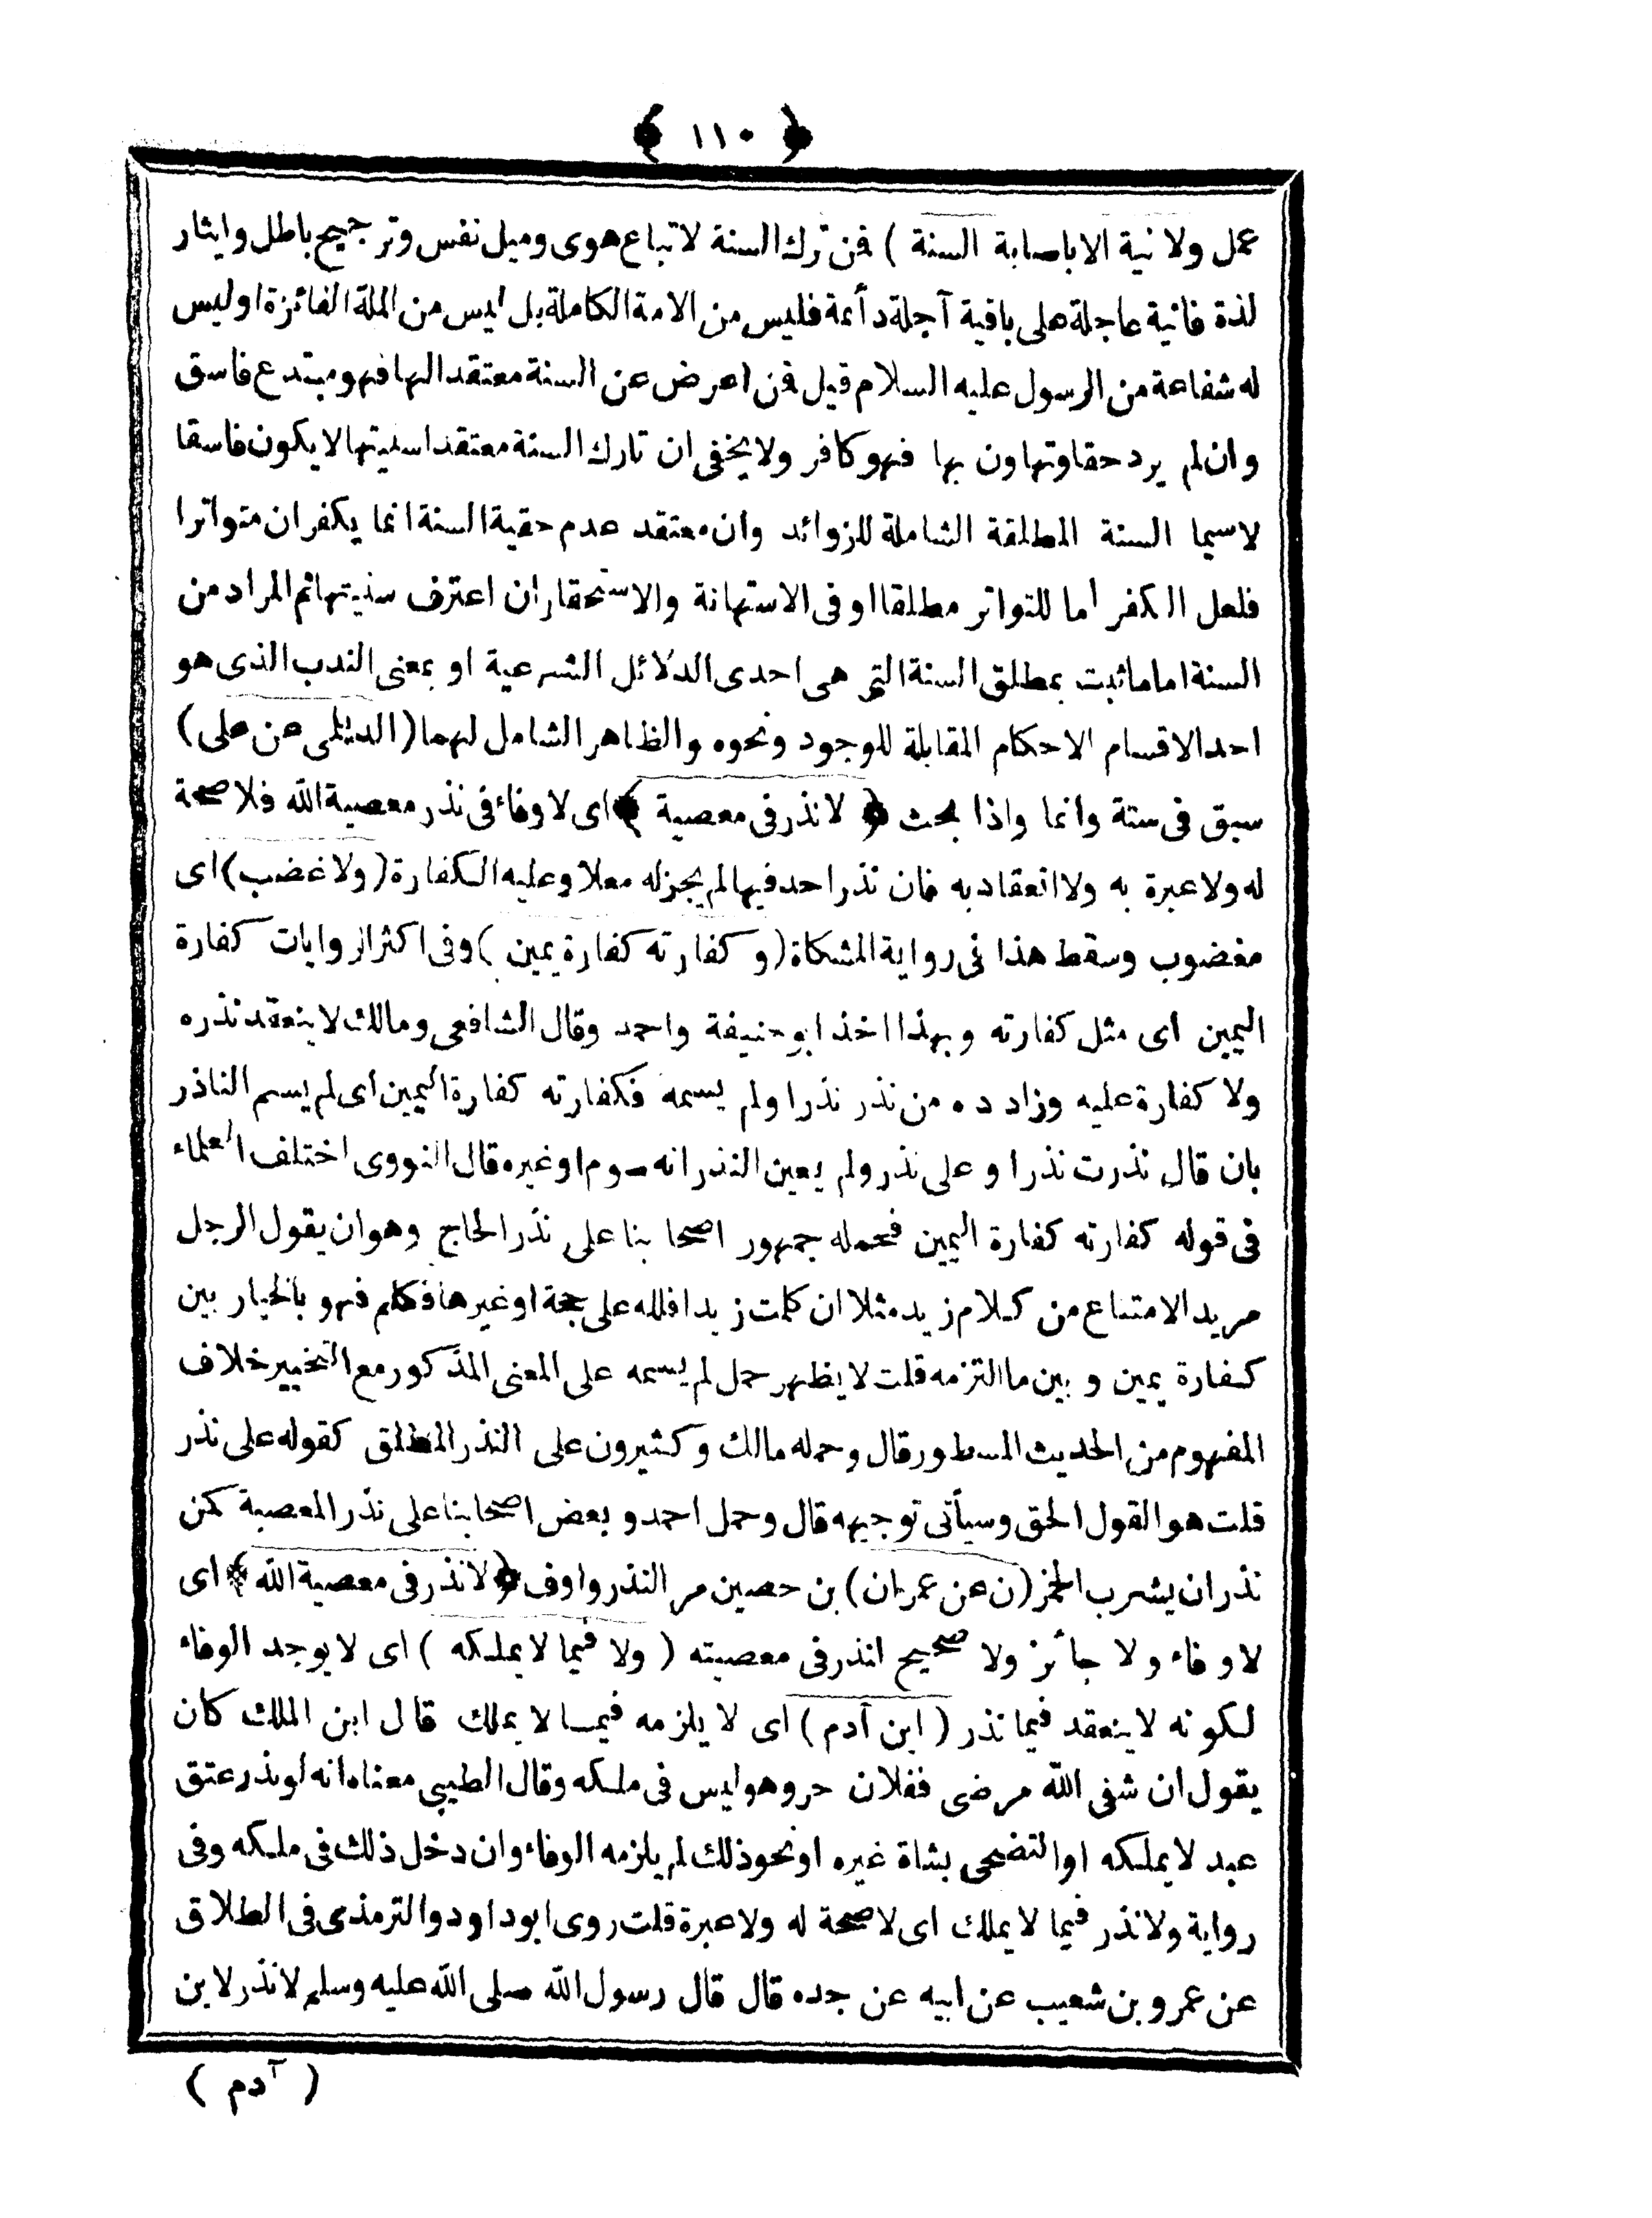 ﴿ ١١٠ ﴾
عمل ولا نية الا باصابة السنة ) فمن ترك السنة لاتباع هوى وميل نفس وترجيح باطل وايثار
لذة فانية عاجلة على باقية آجلة دائمة فليس من الامة الكاملة بل ليس من الملة الفائزة او ليس
له شفاعة من الرسول عليه السلام قيل فمن اعرض عن السنة معتقدا لها فهو مبتدع فاسق
وان لم يرد حقا وتهاون بها فهو كافر ولا يخفى ان تارك السنة معتقدا سنيتها لا يكون فاسقا
لاسيما السنة المطلقة الشاملة للزوائد وان معتقد عدم حقية السنة انما يكفر ان متواترا
فلعل الكفر اما للتواتر مطلقا او فى الاستهانة والاستحقار ان اعترف سنيتها ثم المراد من
السنة اما ما ثبت بمطلق السنة التى هى احدى الدلائل الشرعية او بمعنى الندب الذى هو
احد الاقسام الاحكام المقابلة للوجود ونحوه والظاهر الشامل لهما ( الديلمى عن على )
سبق فى ستة وانما واذا بحث ﴿ لا نذر فى معصية ﴾ اى لا وفاء فى نذر معصية الله فلا صحة
له ولا عبرة به ولا انعقاد به فان نذر احد فيها لم يجز له معلا وعليه الكفارة ( ولا غضب ) اى
مغضوب وسقط هذا فى رواية المشكاة ( وكفارته كفارة يمين ) وفى اكثر الروايات كفارة
اليمين اى مثل كفارته وبهذا اخذ ابو حنيفة واحمد وقال الشافعى ومالك لا ينعقد نذره
ولا كفارة عليه وزاد ده من نذر نذرا ولم يسمه فكفارته كفارة اليمين اى لم يسم الناذر
بان قال نذرت نذرا و على نذر ولم يعين النذر انه صوم او غيره قال النووى اختلف العلماء
فى قوله كفارته كفارة اليمين فحمله جمهور اصحابنا على نذر الحاج وهو ان يقول الرجل
مريد الامتناع من كلام زيد مثلا ان كلمت زيدا فلله على حجة او غيرها فكلم فهو بالخيار بين
كفارة يمين و بين ما التزمه قلت لا يظهر حمل لم يسمه على المعنى المذكور مع التخيير خلاف
المفهوم من الحديث المسطور قال وحمله مالك وكثيرون على النذر المطلق كقوله على نذر
قلت هو القول الحق وسيأتى توجيهه قال وحمل احمد و بعض اصحابنا على نذر المعصية كمن
نذر ان يشرب الخمر ( ن عن عمران ) بن حصين مر النذر واوف ﴿ لا نذر فى معصية الله ﴾ اى
لا وفاء ولا جائز ولا صحيح انذر فى معصيته ( ولا فيما لا يملكه ) اى لا يوجد الوفاء
لكونه لا ينعقد فيما نذر ( ابن آدم ) اى لا يلزمه فيما لا يملك قال ابن الملك كان
يقول ان شفى الله مرضى ففلان حر وهو ليس فى ملكه وقال الطيبى معناه انه لو نذر عتق
عبد لا يملكه او التضحى بشاة غيره او نحو ذلك لم يلزمه الوفاء وان دخل ذلك فى ملكه وفى
رواية ولا نذر فيما لا يملك اى لا صحة له ولا عبرة قلت روى ابو داود والترمذى فى الطلاق
عن عمرو بن شعيب عن ابيه عن جده قال قال رسول الله صلى الله عليه وسلم لا نذر لابن
( آدم )